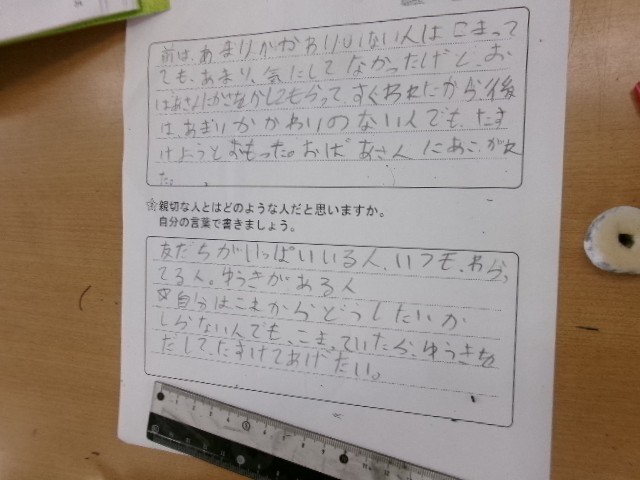 前は、あまりかかわりのない人はこまって
ても、あまり、気にしてなかったけど、お
ばあさんにかさをかしてもらって、すくわれたから、後
は、あまりかかわりのない人でも、たす
けようとおもった。おばあさんにあこがれ
た。
☆親切な人とはどのような人だと思いますか。
自分の言葉で書きましょう。
友だちがいっぱいいる人、いつも、わらっ
てる人。ゆうきがある人
自分はこれからどうしたいか
しらない人でも、こまっていたら、ゆうきを
だして、たすけてあげたい。